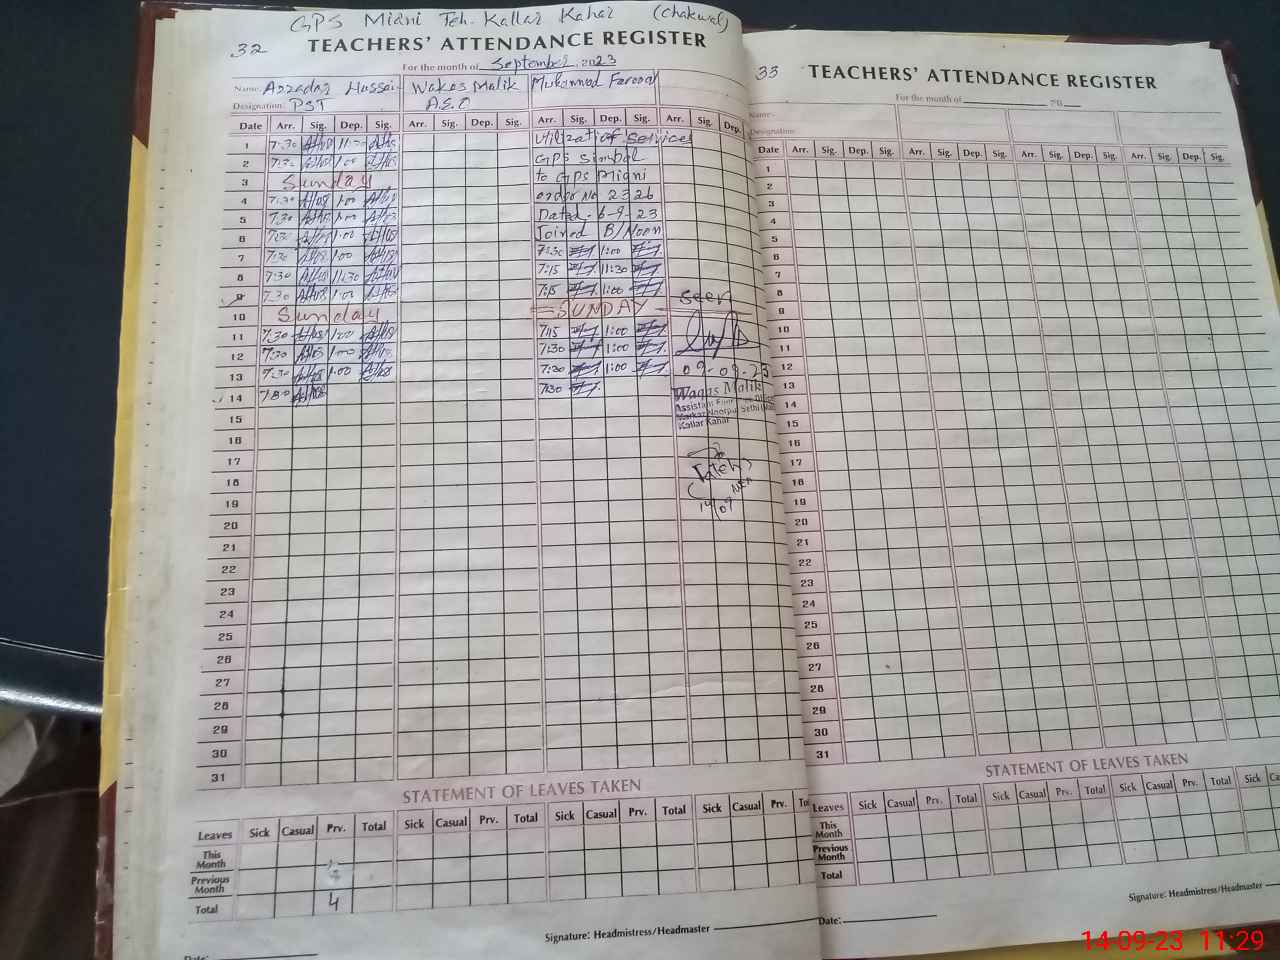 GPS Miani Teh. Kallar Kahar (Chakwal)
32 TEACHERS' ATTENDANCE REGISTER
For the month of September 2023
Name: Azzadar Hussain Wakas Malik Muhammad Farooq
Designation: PST A.E.O
Date Arr. Sig. Dep. Sig. Arr. Sig. Dep. Sig. Arr. Sig. Dep. Sig. Arr. Sig. Dep.
1 7:30 11:30 Utilization of Services
2 7:30 1:00 GPS Simbal
3 Sunday to GPS Miani
4 7:30 1:00 order No 2326
5 7:30 1:00 Dated. 6-9-23
6 7:30 1:00 Joined B/Noon
7 7:30 1:00 7:30 1:00
8 7:30 11:30 7:15 11:30
9 7:30 1:00 7:15 1:00 seen
10 Sunday =SUNDAY
11 7:30 1:00 7:15 1:00
12 7:30 1:00 7:30 1:00
13 7:30 1:00 7:30 1:00 09-09-23
14 7:30 7:30 Waqas Malik
Assistant
Markaz Noorpur Sethi
Kallar Kahar
15
16
17
18
19 14/09
20
21
22
23
24
25
26
27
28
29
30
31
STATEMENT OF LEAVES TAKEN
Leaves Sick Casual Prv. Total Sick Casual Prv. Total Sick Casual Prv. Total Sick Casual Prv.
This Month
Previous Month
Total 4
Signature: Headmistress/Headmaster
Date:
33 TEACHERS' ATTENDANCE REGISTER
For the month of 20
Name:
Designation:
Date Arr. Sig. Dep. Sig. Arr. Sig. Dep. Sig. Arr. Sig. Dep. Sig. Arr. Sig. Dep. Sig.
1
2
3
4
5
6
7
8
9
10
11
12
13
14
15
16
17
18
19
20
21
22
23
24
25
26
27
28
29
30
31
STATEMENT OF LEAVES TAKEN
Leaves Sick Casual Prv. Total Sick Casual Prv. Total Sick Casual Prv. Total Sick
This Month
Previous Month
Total
Signature: Headmistress/Headmaster
Date:
14-09-23 11:29